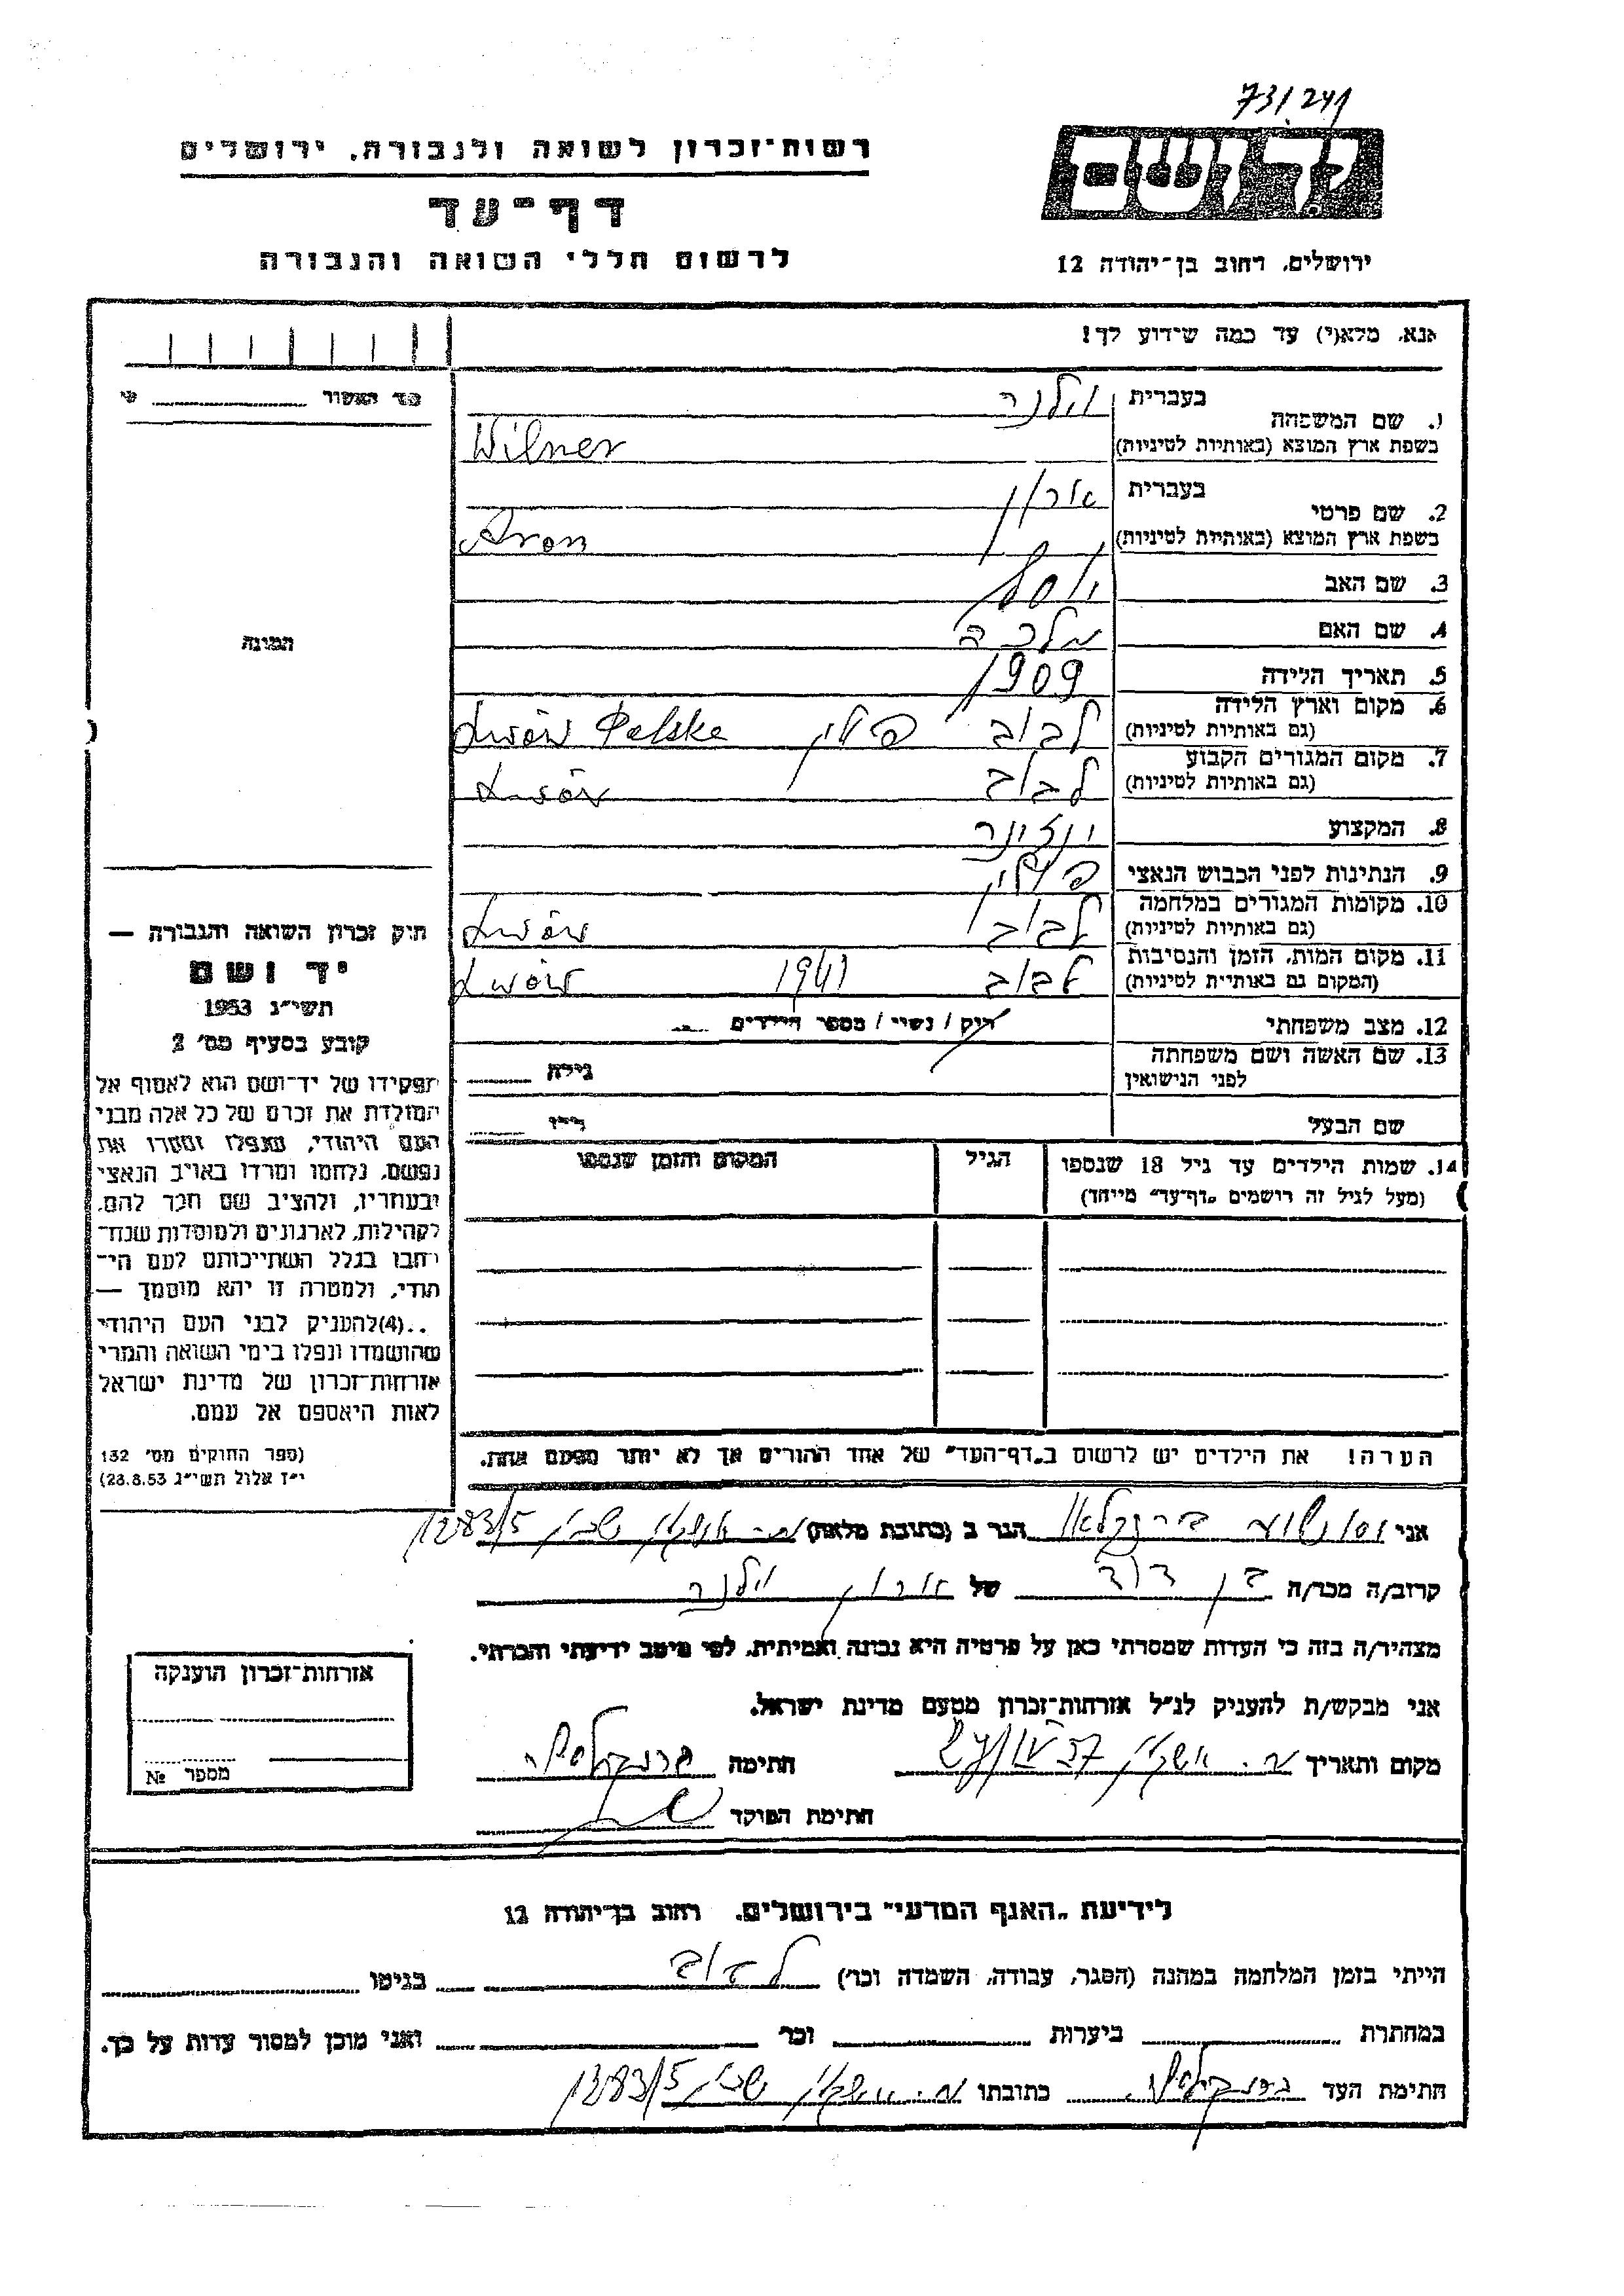 73/241
רשות־זכרון לשואה ולגבורה, ירושלים
יד ושם
דף־עד
לרשום חללי השואה והגבורה
ירושלים, רחוב בן־יהודה 12
אנא, מלא(י) עד כמה שידוע לך!
1. שם המשפחה בעברית וילנר
בשפת ארץ המוצא (באותיות לטיניות) Wilner
2. שם פרטי בעברית ארון
בשפת ארץ המוצא (באותיות לטיניות) Aron
3. שם האב יוסף
4. שם האם מלכה
5. תאריך הלידה 1909
6. מקום וארץ הלידה (גם באותיות לטיניות) לבוב פולין Lwów Polska
7. מקום המגורים הקבוע (גם באותיות לטיניות) לבוב Lwów
8. המקצוע
9. הנתינות לפני הכבוש הנאצי פולין
10. מקומות המגורים במלחמה (גם באותיות לטיניות) לבוב Lwów
11. מקום המות, הזמן והנסיבות (המקום גם באותיות לטיניות) לבוב 1941 Lwów
12. מצב משפחתי רוק / נשוי / מספר הילדים
13. שם האשה ושם משפחתה לפני הנישואין גילה
שם הבעל גילו
14. שמות הילדים עד גיל 18 שנספו הגיל המקום והזמן שנספו
(מעל לגיל זה רושמים „דף־עד" מיוחד)
התמונה
חוק זכרון השואה והגבורה —
יד ושם
תשי״ג 1953
קובע בסעיף מס׳ 2
תפקידו של יד־ושם הוא לאסוף אל
המולדת את זכרם של כל אלה מבני
העם היהודי, שנפלו ומסרו את
נפשם, נלחמו ומרדו באויב הנאצי
ובעוזריו, ולהציב שם וזכר להם,
לקהילות, לארגונים ולמוסדות שנח־
רבו בגלל השתייכותם לעם הי־
הודי, ולמטרה זו יהא מוסמך —
..(4) להעניק לבני העם היהודי
שהושמדו ונפלו בימי השואה והמרי
אזרחות־זכרון של מדינת ישראל
לאות היאספם אל עמם.
(ספר החוקים מס׳ 132
י״ז אלול תשי״ג 28.8.53)
הערה! את הילדים יש לרשום ב„דף־העד" של אחד ההורים אך לא יותר מפעם אחת.
אני הגר ב (כתובת מלאה) 1283/5
קרוב/ה מכר/ה בן דוד של ארון וילנר
מצהיר/ה בזה כי העדות שמסרתי כאן על פרטיה היא נכונה ואמיתית, לפי מיטב ידיעתי והכרתי.
אני מבקש/ת להעניק לנ״ל אזרחות־זכרון מטעם מדינת ישראל.
מקום ותאריך חתימה
חתימת הפוקד
אזרחות־זכרון הוענקה
מספר №
לידיעת „האגף המדעי" בירושלים, רחוב בן־יהודה 12
הייתי בזמן המלחמה במחנה (הסגר, עבודה, השמדה וכו׳) לבוב בגיטו
במחתרת ביערות וכו׳ ואני מוכן למסור עדות על כך.
חתימת העד כתובתו 1283/5